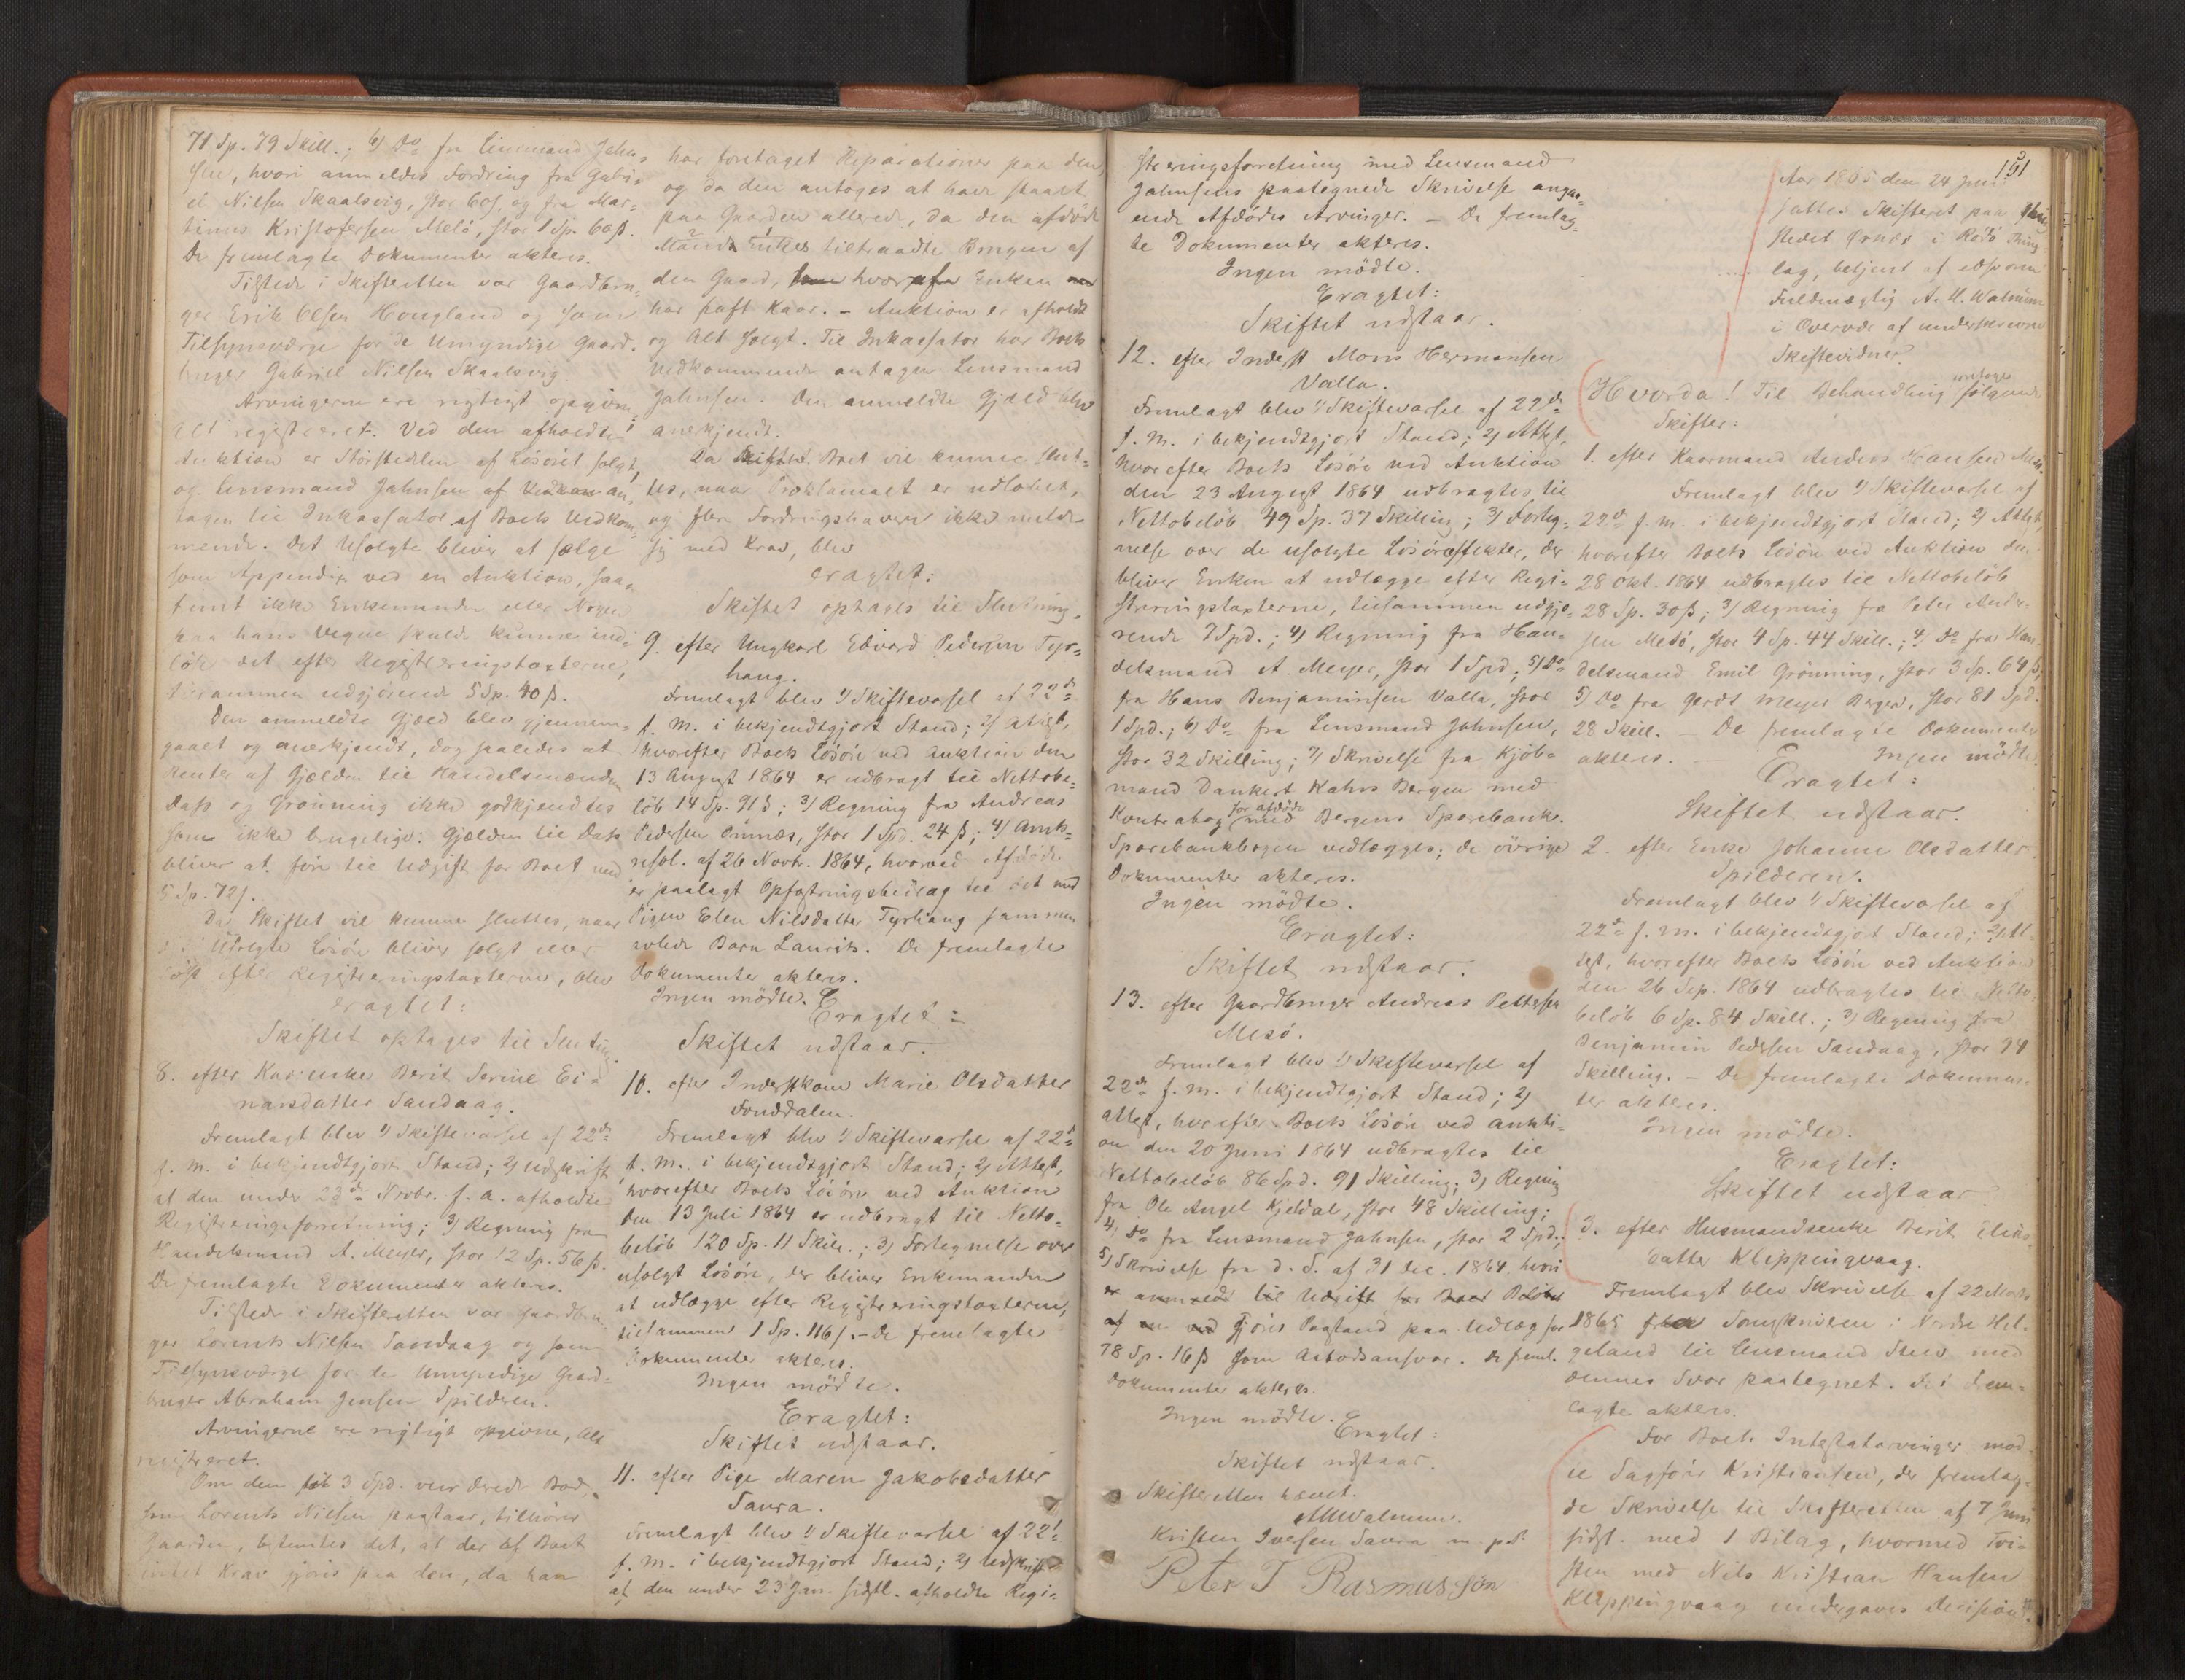 71 Sp. 79 Skill.; 6) Do fra Lensmand Jahn-
sen, hvori anmeldes Fordring fra Gabri-
el Nilsen Skaalsvig, stor 60 s, og fra Mar-
tinus Kristofersen Melö, stor 1 Sp. 60 ß.
De fremlagte Dokumenter akteres.
Tilstede i Skifteretten var Gaardbru-
ger Erik Olsen Hougland og som
Tilsynsværge for de Umyndige Gaard-
bruger Gabriel Nilsen Skaalsvig.
Arvingerne ere rigtigt opgivne,
Alt registreret. Ved den afholdte
Auktion er Störstedelen af Lösöret solgt,
og Lensmand Jahnsen af an-
tagen til Inkassator af Boets Vedkom-
mende. Det Usolgte bliver at sælge
som Appendix ved en Auktion, saa-
fremt ikke Enkemanden eller Nogen
paa hans Vegne skulde kunne ind-
löse det efter Registreringstaxterne,
tilsammen udgjörende 5 Sp. 40 ß.
Den anmeldte Gjæld blev gjennem-
gaaet og anerkjendt, dog saaledes at
Renter af Gjælden til Handelsmændene
Dass og Grönning ikke godkjendtes
som ikke brugelige. Gjælden til Dass
bliver at före til Udgift for Boet med
5 Sp. 72 s.
Da Skiftet vil kunne sluttes, naar
Usolgte Lösöre bliver solgt eller
löst efter Registreringstaxterne, blev
eragtet:
Skiftet optages til Slutning.
8. efter Kaarenke Berit Serine Ei-
narsdatter Sandaag.
Fremlagt blev 1) Skiftevarsel af 22de
f. M. i bekjendtgjort Stand; 2) Udskrift
af den under 23de Novbr. f. a. afholdte
Registreringsforretning; 3) Regning fra
Handelsmand A. Meyer, stor 12 Sp. 56 ß.
De fremlagte Dokumenter akteres.
Tilstede i Skifteretten var Gaardbru-
ger Lorents Nilsen Sandaag og som
Tilsynsværge for de Umyndige Gaard-
bruger Abraham Jensen Spilderen.
Arvingerne ere rigtigt opgivne, Alt
registreret.
Om den til 3 Spd. vurderede Bod,
som Lorents Nilsen paastaar, tilhörer
Gaarden, bemærkes det, at der af Boet
intet Krav gjöres paa den, da han
har foretaget Reparationer paa den,
og da den antages at have staaet
paa Gaarden allerede, da den afdöde
Mands Enkes tiltraadte Brugen af
den Gaard, hvoraf Enken
har havt Kaar. - Auktion er afholdt
og Alt solgt. Til Inkassator har Boets
Vedkommende antagen Lensmand
Jahnsen. Den anmeldte Gjæld blev
anerkjendt.
Da Boet vil kunne slut-
tes, naar Proklamaet er udlöbet,
og flere Fordringshavere ikke melde
sig med Krav, blev
eragtet:
Skiftet optages til Slutning.
9. efter Ungkarl Edvard Pedersen Tyr-
haug.
Fremlagt blev 1) Skiftevarsel af 22de
f. M. i bekjendtgjort Stand; 2) Attest,
hvorefter Boets Lösöre ved Auktion den
13 August 1864 er udbragt til Nettobe-
löb 14 Sp. 91 s; 3) Regning fra Andreas
Pedersen Önnæs, stor 1 Spd. 24 ß; 4) Amts-
resol. af 26 Novbr. 1864, hvorved Afdöde
er paalagt Opfostringsbidrag til det med
Pigen Elen Nilsdatter Tyrhaug sammen
avlede Barn Laurits. De fremlagte
Dokumenter akteres.
Ingen mödte.
Eragtet:
Skiftet udstaar.
10. efter Inderstkone Marie Olsdatter
Fonddalen.
Fremlagt blev 1) Skiftevarsel af 22de
f. M. i bekjendtgjort Stand; 2) Attest,
hvorefter Boets Lösöre ved Auktion
den 13 Juli 1864 er udbragt til Netto-
belöb 120 Sp. 11 Skill.; 3) Fortegnelse over
usolgt Lösöre, der bliver Enkemanden
at udlægge efter Registreringstaxterne,
tilsammen 1 Sp. 116 s. - De fremlagte
Dokumenter akteres.
Ingen mödte.
Eragtet:
Skiftet udstaar.
11. efter Pige Maren Jakobsdatter
Saura.
Fremlagt blev 1) Skiftevarsel af 22de
f. M. i bekjendtgjort Stand; 2) Udskrift
af den under 23 Jan. sidstl. afholdte Regi-
streringsforretning med Lensmand
Jahnsens paategnede Skrivelse angaa-
ende Afdödes Arvinger. - De fremlag-
te Dokumenter akteres.
Ingen mödte.
Eragtet:
Skiftet udstaar.
12. efter Inderst Mons Hermansen
Valla.
Fremlagt blev 1) Skiftevarsel af 22de
f. M. i bekjendtgjort Stand; 2) Attest,
hvorefter Boets Lösöre ved Auktion
den 23 August 1864 udbragtes til
Nettobelöb 49 Sp. 37 Skilling; 3) Forteg-
nelse over de usolgte Lösöreffekter, der
bliver Enken at udlægge efter Regi-
streringstaxterne, tilsammen udgjö-
rende 7 Spd.; 4) Regning fra Han-
delsmand A. Meyer, stor 1 Spd.; 5) Do
fra Hans Benjaminsen Valla, stor
1 Spd.; 6) Do fra Lensmand Jahnsen,
stor 32 Skilling; 7) Skrivelse fra Kjöb-
mand Dankert Kahrs Bergen med
Kontrabog for afdöde med Bergens Sparebank.
Sparebankbogen vedlægges; de övrige
Dokumenter akteres.
Ingen mödte.
Eragtet:
Skiftet udstaar.
13. efter Gaardbruger Andreas Pettersen
Mesö.
Fremlagt blev 1) Skiftevarsel af
22de f. M. i bekjendtgjort Stand; 2)
Attest, hvorefter Boets Lösöre ved Aukti-
on den 20 Juni 1864 udbragtes til
Nettobelöb 86 Spd. 91 Skilling; 3) Regning
fra Ole Angel Kjeldal, stor 48 Skilling;
4) Do fra Lensmand Jahnsen, stor 2 Spd.;
5) Skrivelse fra d. S. af 31 Dec. 1864, hvori
er anmeldt til Udgift for Boet
af gjöres Paastand paa Udlæg for
78 Sp. 16 ß som Aabodsansvar. De freml.
Dokumenter akteres.
Ingen mödte.
Eragtet:
Skiftet udstaar.
Skifteretten hævet.
AMWalnum.
Kristen Iversen Saura m. p. P.
Peter J Rasmussön
151
Aar 1865 den 24 Juni
sattes Skifteret paa Thing-
stedet Örnes i Rödö Thing-
lag, betjent af edsvoren
Fuldmægtig A. M. Walnum
i Overvær af underskrevne
Skiftevidner.
Hvorda! Til Behandling foretoges fölgende
Skifter:
1. efter Kaarmand Anders Hansen Mesö.
Fremlagt blev 1) Skiftevarsel af
22de f. M. i bekjendtgjort Stand; 2) Attest,
hvorefter Boets Lösöre ved Auktion den
28 Okt. 1864 udbragtes til Nettobelöb
28 Sp. 30 ß; 3) Regning fra Peter Ander-
sen Mesö, stor 4 Sp. 44 Skill.; 4) Do fra Han-
delsmand Emil Grönning, stor 3 Sp. 64 ß;
5) Do fra Gerdt Meyer Bergen, stor 81 Spd.
28 Skill. - De fremlagte Dokumenter
akteres. - Ingen mödte.
Eragtet:
Skiftet udstaar.
2. efter Enke Johanne Olsdatter
Spilderen.
Fremlagt blev 1) Skiftevarsel af
22de f. M. i bekjendtgjort Stand; 2) At-
test, hvorefter Boets Lösöre ved Auktion
den 26 Sep. 1864 udbragtes til Netto-
belöb 6 Sp. 84 Skill.; 3) Regning fra
Benjamin Pedersen Sandaag, stor 94
Skilling. - De fremlagte Dokumen-
ter akteres.
Ingen mödte.
Eragtet:
Skiftet udstaar.
3. efter Husmandsenke Berit Elias-
datter Klippingvaag.
Fremlagt blev Skrivelse af 22 Marts
1865 fra Sorenskriveren i Nordre Hel-
geland til Lensmand Steen med
dennes Svar paategnet. De frem-
lagte akteres.
For Boets Intestatarvinger mød-
te Sagförer Kristiansen, der fremlag-
de Skrivelse til Skifteretten af 7 Juni
sidstl. med 1 Bilag, hvormed Tvi-
sten med Nils Kristian Hansen
Klippingvaag undergaves Decision.